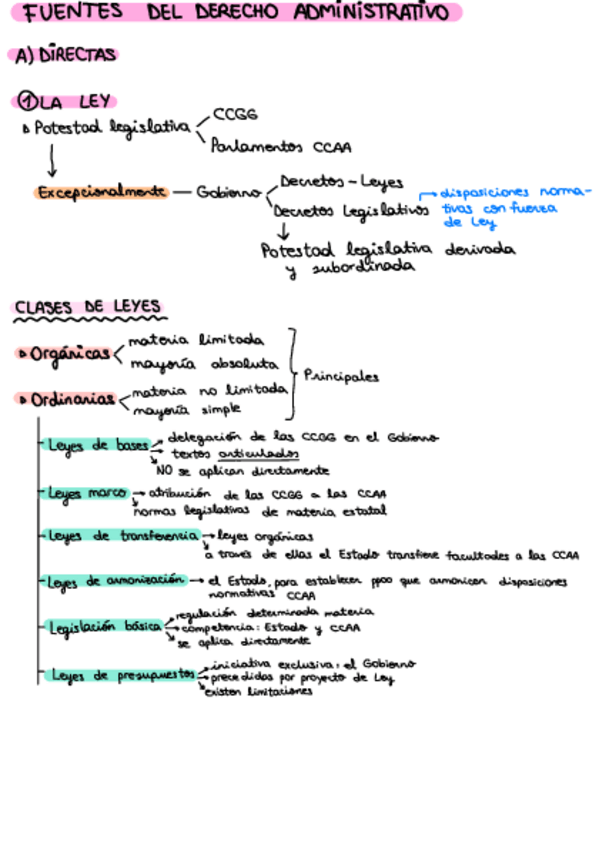 FUENTES DEL DERECHO ADMINISTRATIVO
A) DIRECTAS
① LA LEY
Potestad legislativa
CCGG
Parlamentos CCAA
Excepcionalmente — Gobierno
Decretos-Leyes
Decretos Legislativos
disposiciones norma-
tivas con fuerza
de Ley
Potestad legislativa derivada
y subordinada
CLASES DE LEYES
Orgánicas
materia limitada
mayoría absoluta
Ordinarias
materia no limitada
mayoría simple
Principales
Leyes de bases
delegación de las CCGG en el Gobierno
textos articulados
NO se aplican directamente
Leyes marco → atribución de las CCGG a las CCAA
normas legislativas de materia estatal
Leyes de transferencia → leyes orgánicas
a través de ellas el Estado transfiere facultades a las CCAA
Leyes de armonización → el Estado, para establecer ppoo que armonicen disposiciones
normativas CCAA
Legislación básica
regulación determinada materia
competencia: Estado y CCAA
se aplica directamente
Leyes de presupuestos
iniciativa exclusiva: el Gobierno
precedidas por proyecto de Ley
existen limitaciones